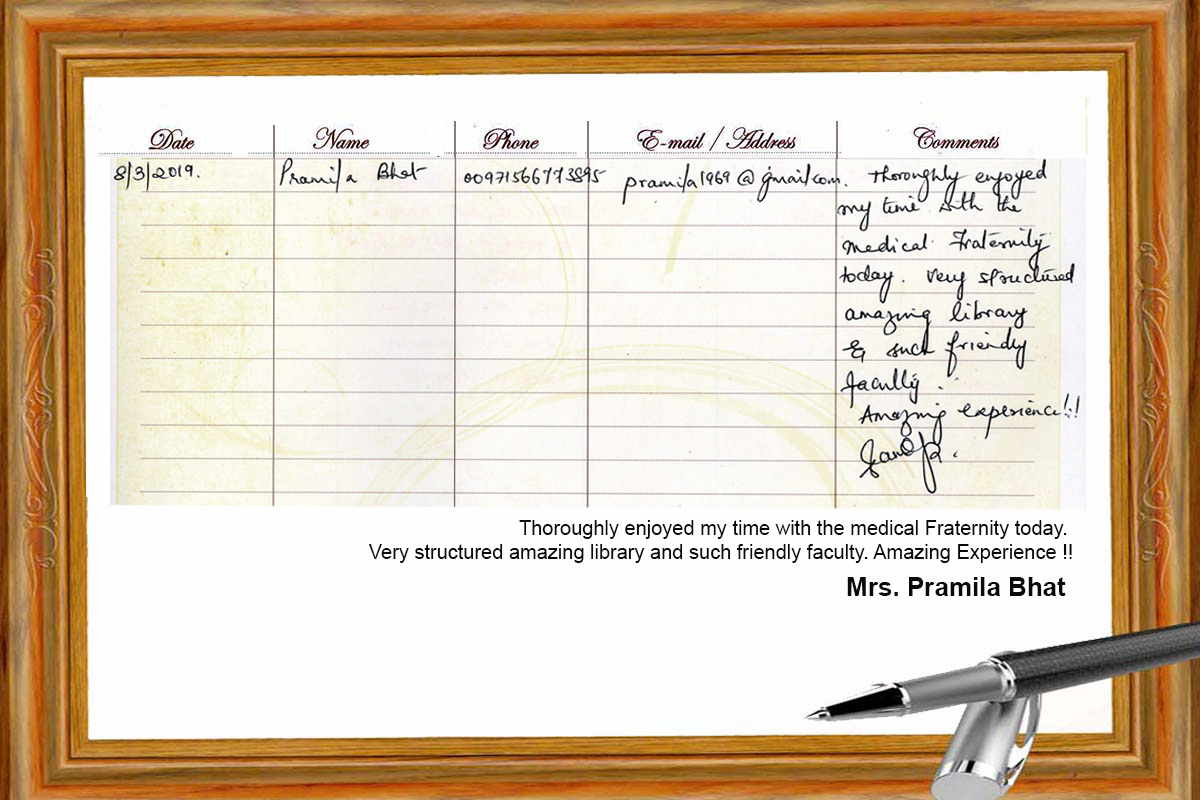 Date Name Phone E-mail / Address Comments
8/3/2019. Pramila Bhat 00971566773895 pramila1969@gmail.com. Thoroughly enjoyed
my time with the
medical Fraternity
today. Very structured
amazing library
& such friendly
faculty.
Amazing experience!!
Thoroughly enjoyed my time with the medical Fraternity today.
Very structured amazing library and such friendly faculty. Amazing Experience !!
Mrs. Pramila Bhat